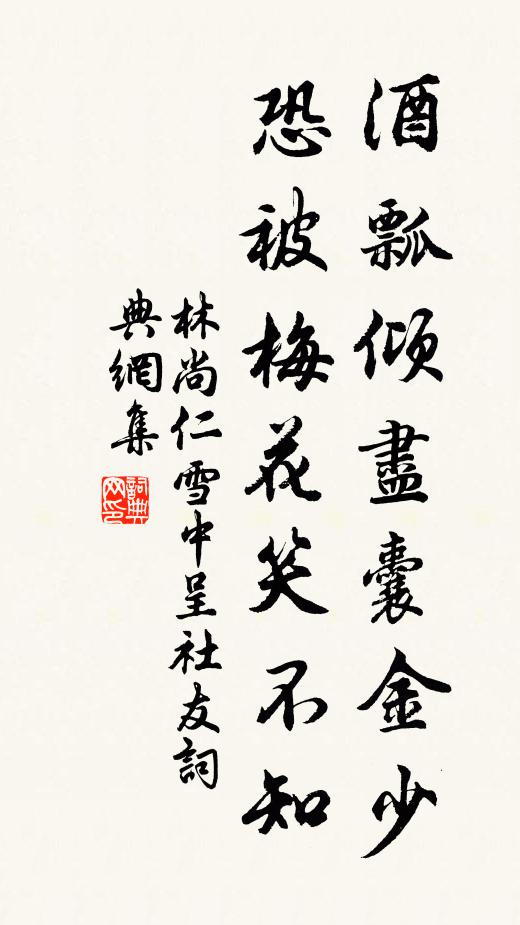 酒瓢傾盡囊金少
恐被梅花笑不知
林尚仁雪中呈社友詞
典網集
詞典網印